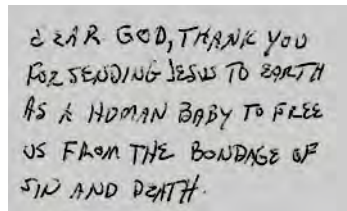 DEAR GOD, THANK YOU
FOR SENDING JESUS TO EARTH
AS A HUMAN BABY TO FREE
US FROM THE BONDAGE OF
SIN AND DEATH.